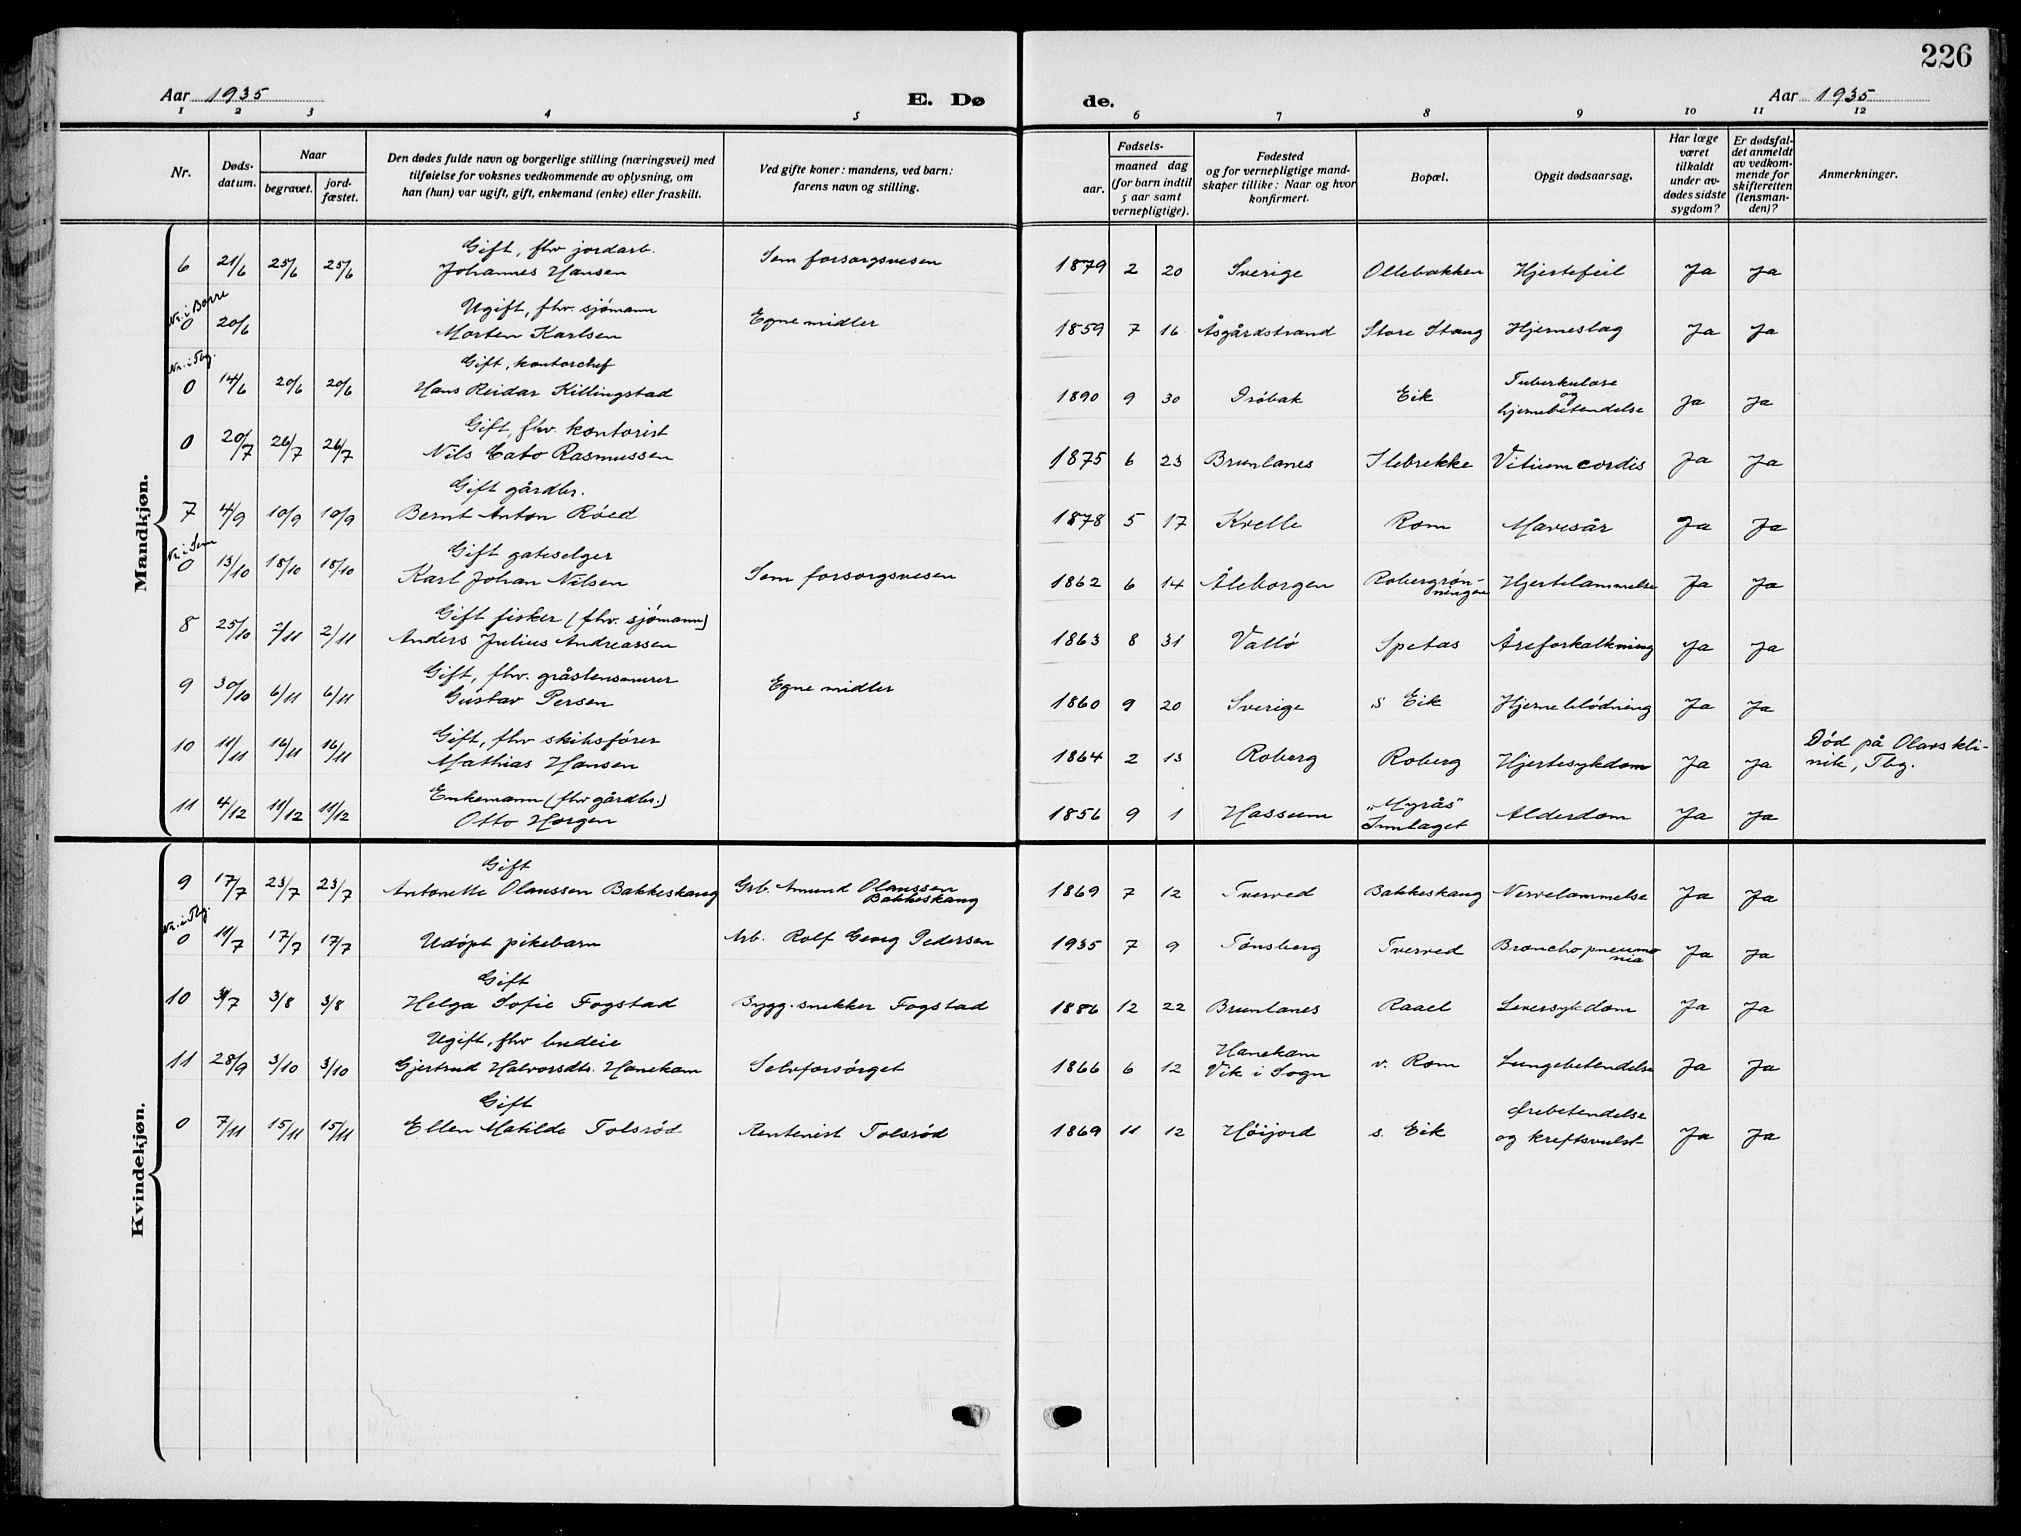 226
Aar 1935 E. Dø de. Aar 1935
1 2 3 4 5 6 7 8 9 10 11 12
Nr.
Døds-
datum.
Naar
begravet.
jord-
fæstet.
Den dødes fulde navn og borgerlige stilling (næringsvei) med
tilføielse for voksnes vedkommende av oplysning, om
han (hun) var ugift, gift, enkemand (enke) eller fraskilt.
Ved gifte koner: mandens, ved barn:
farens navn og stilling.
Fødsels-
aar.
maaned dag
(for barn indtil
5 aar samt
vernepligtige).
Fødested
og for vernepligtige mand-
skaper tillike: Naar og hvor
konfirmert.
Bopæl.
Opgit dødsaarsag.
Har læge
været
tilkaldt
under av-
dødes sidste
sygdom?
Er dødsfal-
det anmeldt
av vedkom-
mende for
skifteretten
(lensman-
den)?
Anmerkninger.
Mandkjøn.
Gift, fhv jordarb.
6 21/6 25/6 25/6 Johannes Hansen Sem forsorgsvesen 1879 2 20 Sverige Ollebakken Hjertefeil Ja Ja
Nr. i Borre Ugift, fhv. sjømann
0 20/6 Morten Karlsen Egne midler 1859 7 16 Åsgårdstrand Store Stang Hjerneslag Ja Ja
Nr. i Tbg. Gift, kontorchef
0 14/6 20/6 20/6 Hans Reidar Killingstad 1890 9 30 Drøbak Eik Tuberkulose
og
hjernebetendelse Ja Ja
Gift, fhv. kontorist
0 20/7 26/7 26/7 Nils Cato Rasmussen 1875 6 23 Brunlanes Ilebrekke Vitium cordis Ja Ja
Gift gårdbr.
7 4/9 10/9 10/9 Bernt Anton Röed 1878 5 17 Kvelle Rom Mavesår Ja Ja
Nr. i Sem Gift gateselger
0 13/10 18/10 18/10 Karl Johan Nilsen Sem forsorgsvesen 1862 6 14 Åleborgen Robergrøn-
ningen Hjertelammelse Ja Ja
Gift fisker (fhv. sjømann)
8 25/10 2/11 2/11 Anders Julius Andreassen 1863 8 31 Vallø Spetas Åreforkalkning Ja Ja
Gift, fhv. gråstensmurer
9 30/10 6/11 6/11 Gustav Persen Egne midler 1860 9 20 Sverige s Eik Hjerneblödning Ja Ja
Gift, fhv skibsfører
10 11/11 16/11 16/11 Mathias Hansen 1864 2 13 Roberg Roberg Hjertesykdom Ja Ja Död på Olavs kli-
nik, Tbg.
Enkemann (fhv gårdbr.)
11 4/12 11/12 11/12 Otto Horgen 1856 9 1 Hassum "Myrås"
Innlaget Alderdom Ja Ja
Kvindekjøn.
Gift
9 17/7 23/7 23/7 Antonette Olaussen Bakkeskaug Grb. Amund Olaussen
Bakkeskaug 1869 7 12 Tverved Bakkeskaug Nervelammelse Ja Ja
Nr. i Tbg.
0 11/7 17/7 17/7 Udöpt pikebarn Arb. Rolf Georg Pedersen 1935 7 9 Tønsberg Tverved Bronchopneumo
nia Ja Ja
Gift
10 31/7 3/8 3/8 Helga Sofie Fogstad Bygg.snekker Fogstad 1886 12 22 Brunlanes Raael Leversykdom Ja Ja
Ugift, fhv budeie
11 28/9 3/10 3/10 Gjertrud Halvorsdtr. Hanekam Selvforsørget 1866 6 12 Hanekam
Vik i Sogn v. Rom Lungebetendelse Ja Ja
Gift
0 7/11 15/11 15/11 Ellen Matilde Tolsrød Rentenist Tolsrød 1869 11 12 Høijord s. Eik Ørebetendelse
og kreftsvulst Ja Ja